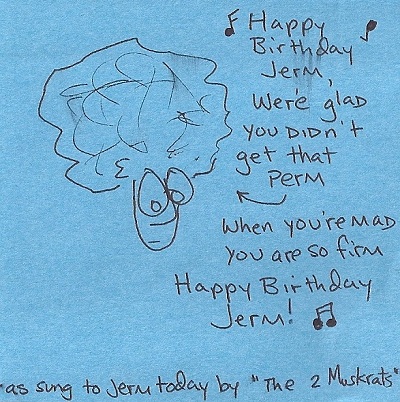 Happy
Birthday
Jerm,
Wer'e glad
you DIDN't
get that
Perm
When you're MAD
you are so firm
Happy Birthday
Jerm!
*as sung to Jerm today by "The 2 Muskrats"